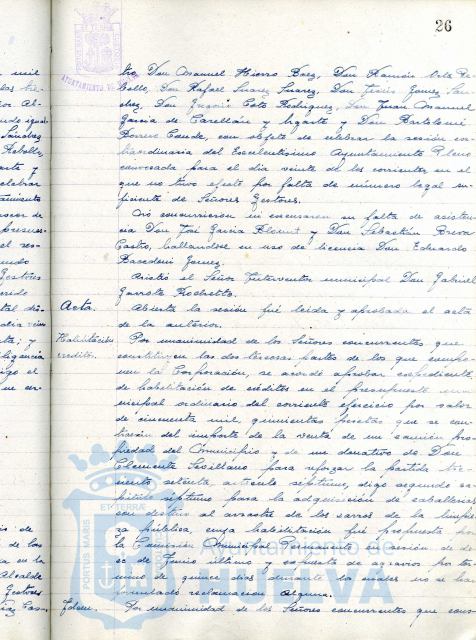 26
tro, Don Manuel Hierro Baez, Don Ramón
bollo, Don Rafael Suarez Suarez, Don Jesús Gomez San-
chez, Don Ignacio Coto Rodriguez, Don Juan Manuel
Garcia de Carellán y Ugarte y Don Bartolomé
Borrero Conde, con objeto de celebrar la sesión ex-
traordinaria del Excelentísimo Ayuntamiento Pleno
convocada para el dia veinte de los corrientes, en el
que no tuvo efecto por falta de número legal su-
ficiente de Señores Gestores.
No concurrieron ni excusaron su falta de asisten-
cia Don José Garcia Blosent y Don Sebastián
Castro, hallandose en uso de licencia Don Eduardo
Gomez.
Asistió el Señor Interventor municipal Don Gabriel
Garrote
Acta.
Abierta la sesión fué leida y aprobada el acta
de la anterior.
Habilitación
credito.
Por unanimidad de los Señores concurrentes que
constituyen las dos terceras partes de los que compo-
nen la Corporación, se acordó aprobar expediente
de habilitación de créditos en el presupuesto mu-
nicipal ordinario del corriente ejercicio por valor
de cincuenta mil quinientas pesetas que se con-
traerán del importe de la venta de un camión pro-
piedad del Municipio y de un donativo de Don
Clemente Sevillano para reforzar la partida tres-
cienta setenta, artículo séptimo, digo segundo ca-
pítulo séptimo para la adquisición de caballerías
con destino al arrastre de los carros de la limpie-
za pública, cuya habilitación fué propuesta por
la Comisión Municipal Permanente en sesión de do-
ce de Junio último y expuesta de agravios por tér-
mino de quince dias durante los cuales no se ha
formulado reclamación alguna.
Idem.
Por unanimidad de los Señores concurrentes que cons-
PORTUS MARIS ET TERRAE
Ayuntamiento de
HUELVA